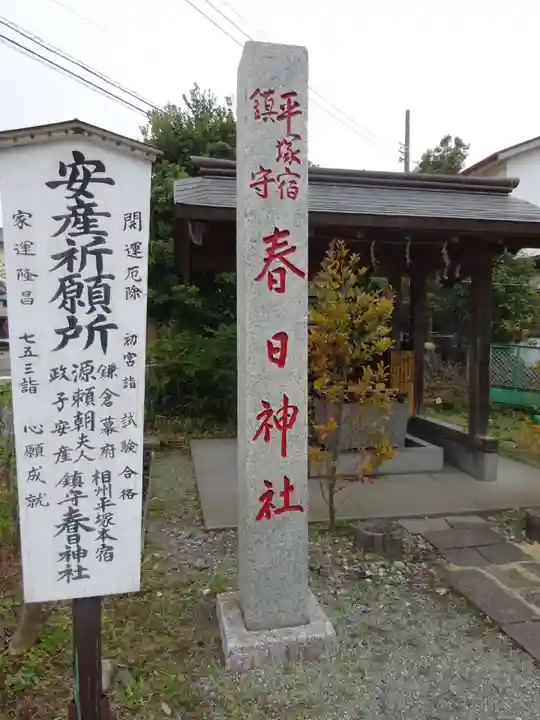 平塚宿
鎮守
春日神社
開運厄除 初宮詣 試験合格
安産祈願所
鎌倉幕府
源頼朝夫人
政子安産
相州平塚本宿
鎮守春日神社
家運隆昌 七五三詣 心願成就